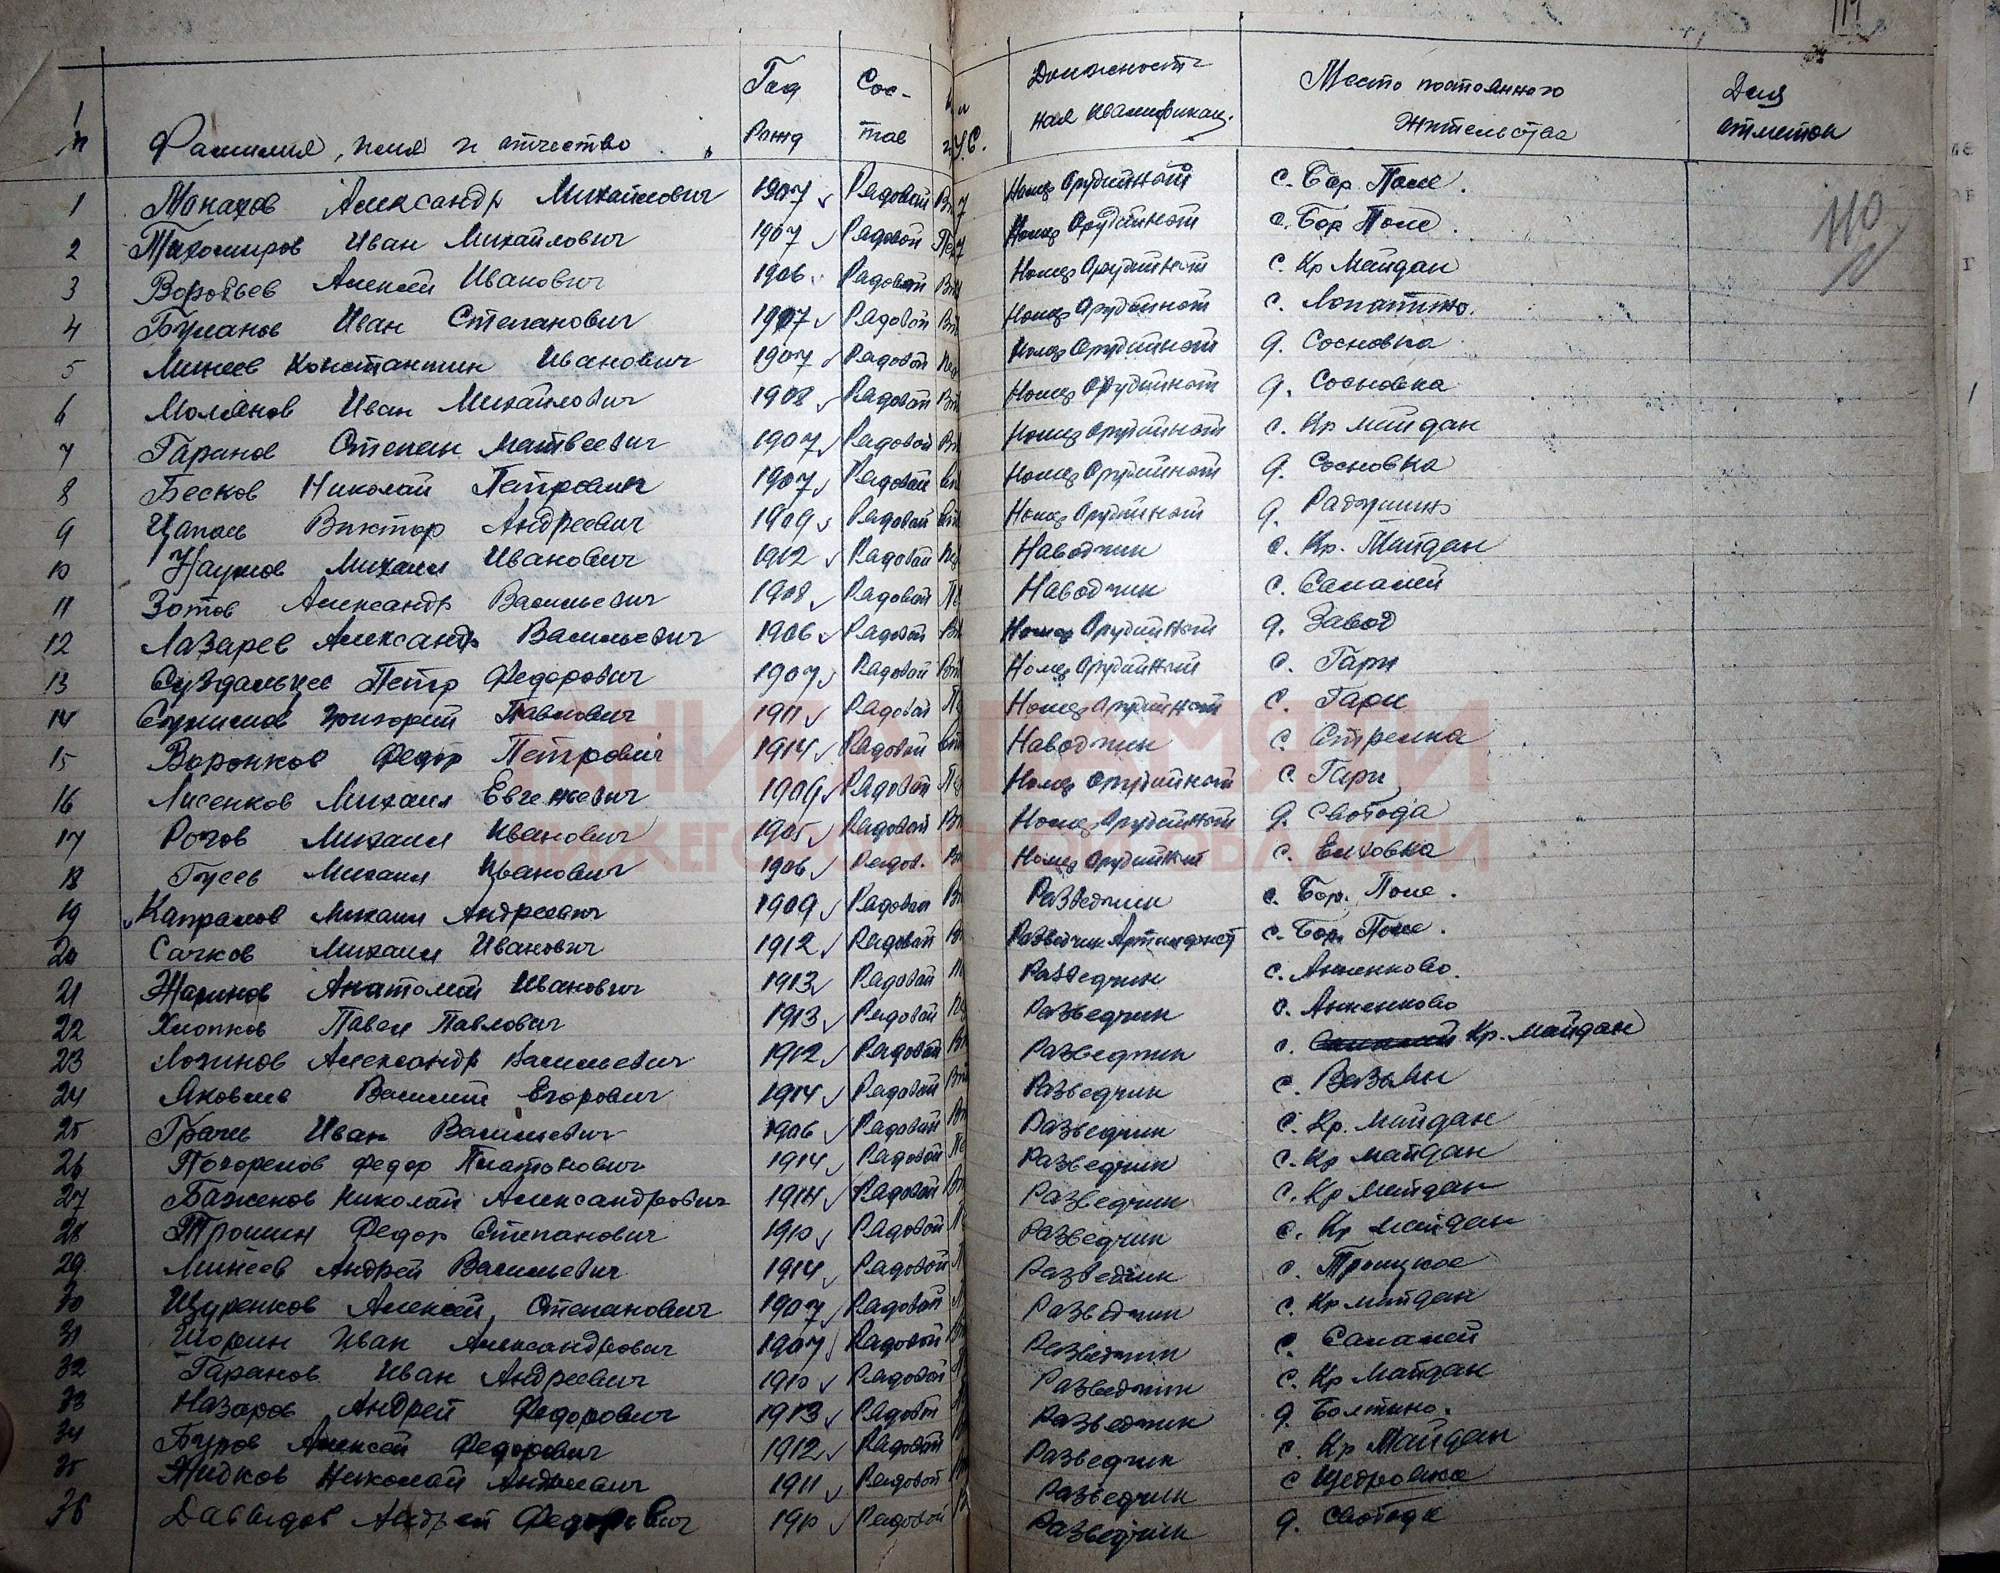 № п Фамилия, имя и отчество Год Рожд Сос-тав У.С. Должностная квалификац. Место постоянного жительства Для отметок
110
1 Монахов Александр Михайлович 1907 Рядовой Номер Орудийный с. Бор. Поле.
2 Тихомиров Иван Михайлович 1907 Рядовой Номер Орудийный с. Бор Поле.
3 Воробьев Алексей Иванович 1906 Рядовой Номер Орудийный с. Кр Майдан
4 Буланов Иван Степанович 1907 Рядовой Номер Орудийный с. Лопатино.
5 Минеев Константин Иванович 1907 Рядовой Номер Орудийный д. Сосновка
6 Молянов Иван Михайлович 1908 Рядовой Номер Орудийный д. Сосновка
7 Гаранов Степан Матвеевич 1907 Рядовой Номер Орудийный с. Кр майдан
8 Бесков Николай Петрович 1907 Рядовой Номер Орудийный д. Сосновка
9 Цапаев Виктор Андреевич 1909 Рядовой Номер Орудийный д.
10 Наумов Михаил Иванович 1912 Рядовой Наводчик с. Кр. Майдан
11 Зотов Александр Васильевич 1908 Рядовой Наводчик с. Салалей
12 Лазарев Александр Васильевич 1906 Рядовой Номер Орудийный д. Завод
13 Суздальцев Петр Федорович 1907 Рядовой Номер Орудийный с. Гари
14 Григорий Павлович 1911 Рядовой Номер Орудийный с. Гари
15 Воронков Федор Петрович 1914 Рядовой Наводчик с. Стрелка
16 Лисенков Михаил Евгеньевич 1909 Рядовой Номер Орудийный с. Гари
17 Рогов Михаил Иванович 1905 Рядовой Номер Орудийный д. Свобода
18 Гусев Михаил Иванович 1906 Рядов. Номер Орудийный с. Елховка
19 Капралов Михаил Андреевич 1909 Рядовой Разведчик с. Бор. Поле.
20 Сачков Михаил Иванович 1912 Рядовой Разведчик с. Бор. Поле.
21 Жаринов Анатолий Иванович 1913 Рядовой Разведчик с. Анненково.
22 Хлопков Павел Павлович 1913 Рядовой Разведчик с. Анненково
23 Лозинов Александр Васильевич 1912 Рядовой Разведчик с. Кр. майдан
24 Яковлев Василий Егорович 1914 Рядовой Разведчик с. Вазьян
25 Грачев Иван Васильевич 1906 Рядовой Разведчик с. Кр. майдан
26 Погорелов Федор Платонович 1914 Рядовой Разведчик с. Кр майдан
27 Баженов Николай Александрович 1914 Рядовой Разведчик с. Кр майдан
28 Трошин Федор Степанович 1910 Рядовой Разведчик с. Кр майдан
29 Минеев Андрей Васильевич 1914 Рядовой Разведчик с. Троицкое
30 Щуренков Алексей Степанович 1907 Рядовой Разведчик с. Кр майдан
31 Шорин Иван Александрович 1907 Рядовой Разведчик с. Салалей
32 Гаранов Иван Андреевич 1910 Рядовой Разведчик с. Кр Майдан
33 Назаров Андрей Федорович 1913 Рядовой Разведчик д. Болтино.
34 Буров Алексей Федорович 1912 Рядовой Разведчик с. Кр Майдан
35 Жидков Николай Андреевич 1911 Рядовой Разведчик с Щедровка
36 Давыдов Андрей Федорович 1910 Рядовой Разведчик д. Свобода
КНИГА ПАМЯТИ
НИЖЕГОРОДСКОЙ ОБЛАСТИ